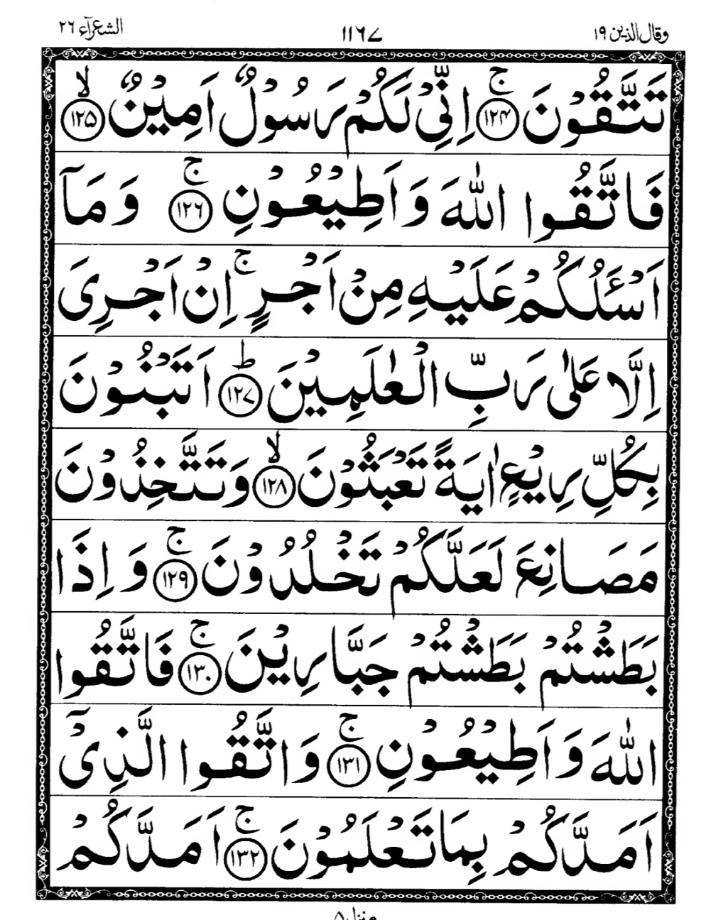 وقال الذين ١٩ ١١٦٧ الشعرآء ٢٦
تَتَّقُوْنَ ۚ‏﴿۱۲۴﴾ اِنِّىْ لَكُمْ رَسُوْلٌ اَمِيْنٌ ۙ‏﴿۱۲۵﴾
فَاتَّقُوا اللّٰهَ وَاَطِيْعُوْنِ ۚ‏﴿۱۲۶﴾ وَمَاۤ
اَسْـَٔـلُكُمْ عَلَيْهِ مِنْ اَجْرٍ ۚ اِنْ اَجْرِىَ
اِلَّا عَلٰى رَبِّ الْعٰلَمِيْنَ ؕ‏﴿۱۲۷﴾ اَتَبْنُوْنَ
بِكُلِّ رِيْعٍ اٰيَةً تَعْبَثُوْنَ ۙ‏﴿۱۲۸﴾ وَتَتَّخِذُوْنَ
مَصَانِعَ لَعَلَّكُمْ تَخْلُدُوْنَ ۚ‏﴿۱۲۹﴾ وَاِذَا
بَطَشْتُمْ بَطَشْتُمْ جَبَّارِيْنَ ۚ‏﴿۱۳۰﴾ فَاتَّقُوا
اللّٰهَ وَاَطِيْعُوْنِ ۚ‏﴿۱۳۱﴾ وَاتَّقُوا الَّذِىْۤ
اَمَدَّكُمْ بِمَا تَعْلَمُوْنَ ۚ‏﴿۱۳۲﴾ اَمَدَّكُمْ
منزل ۵